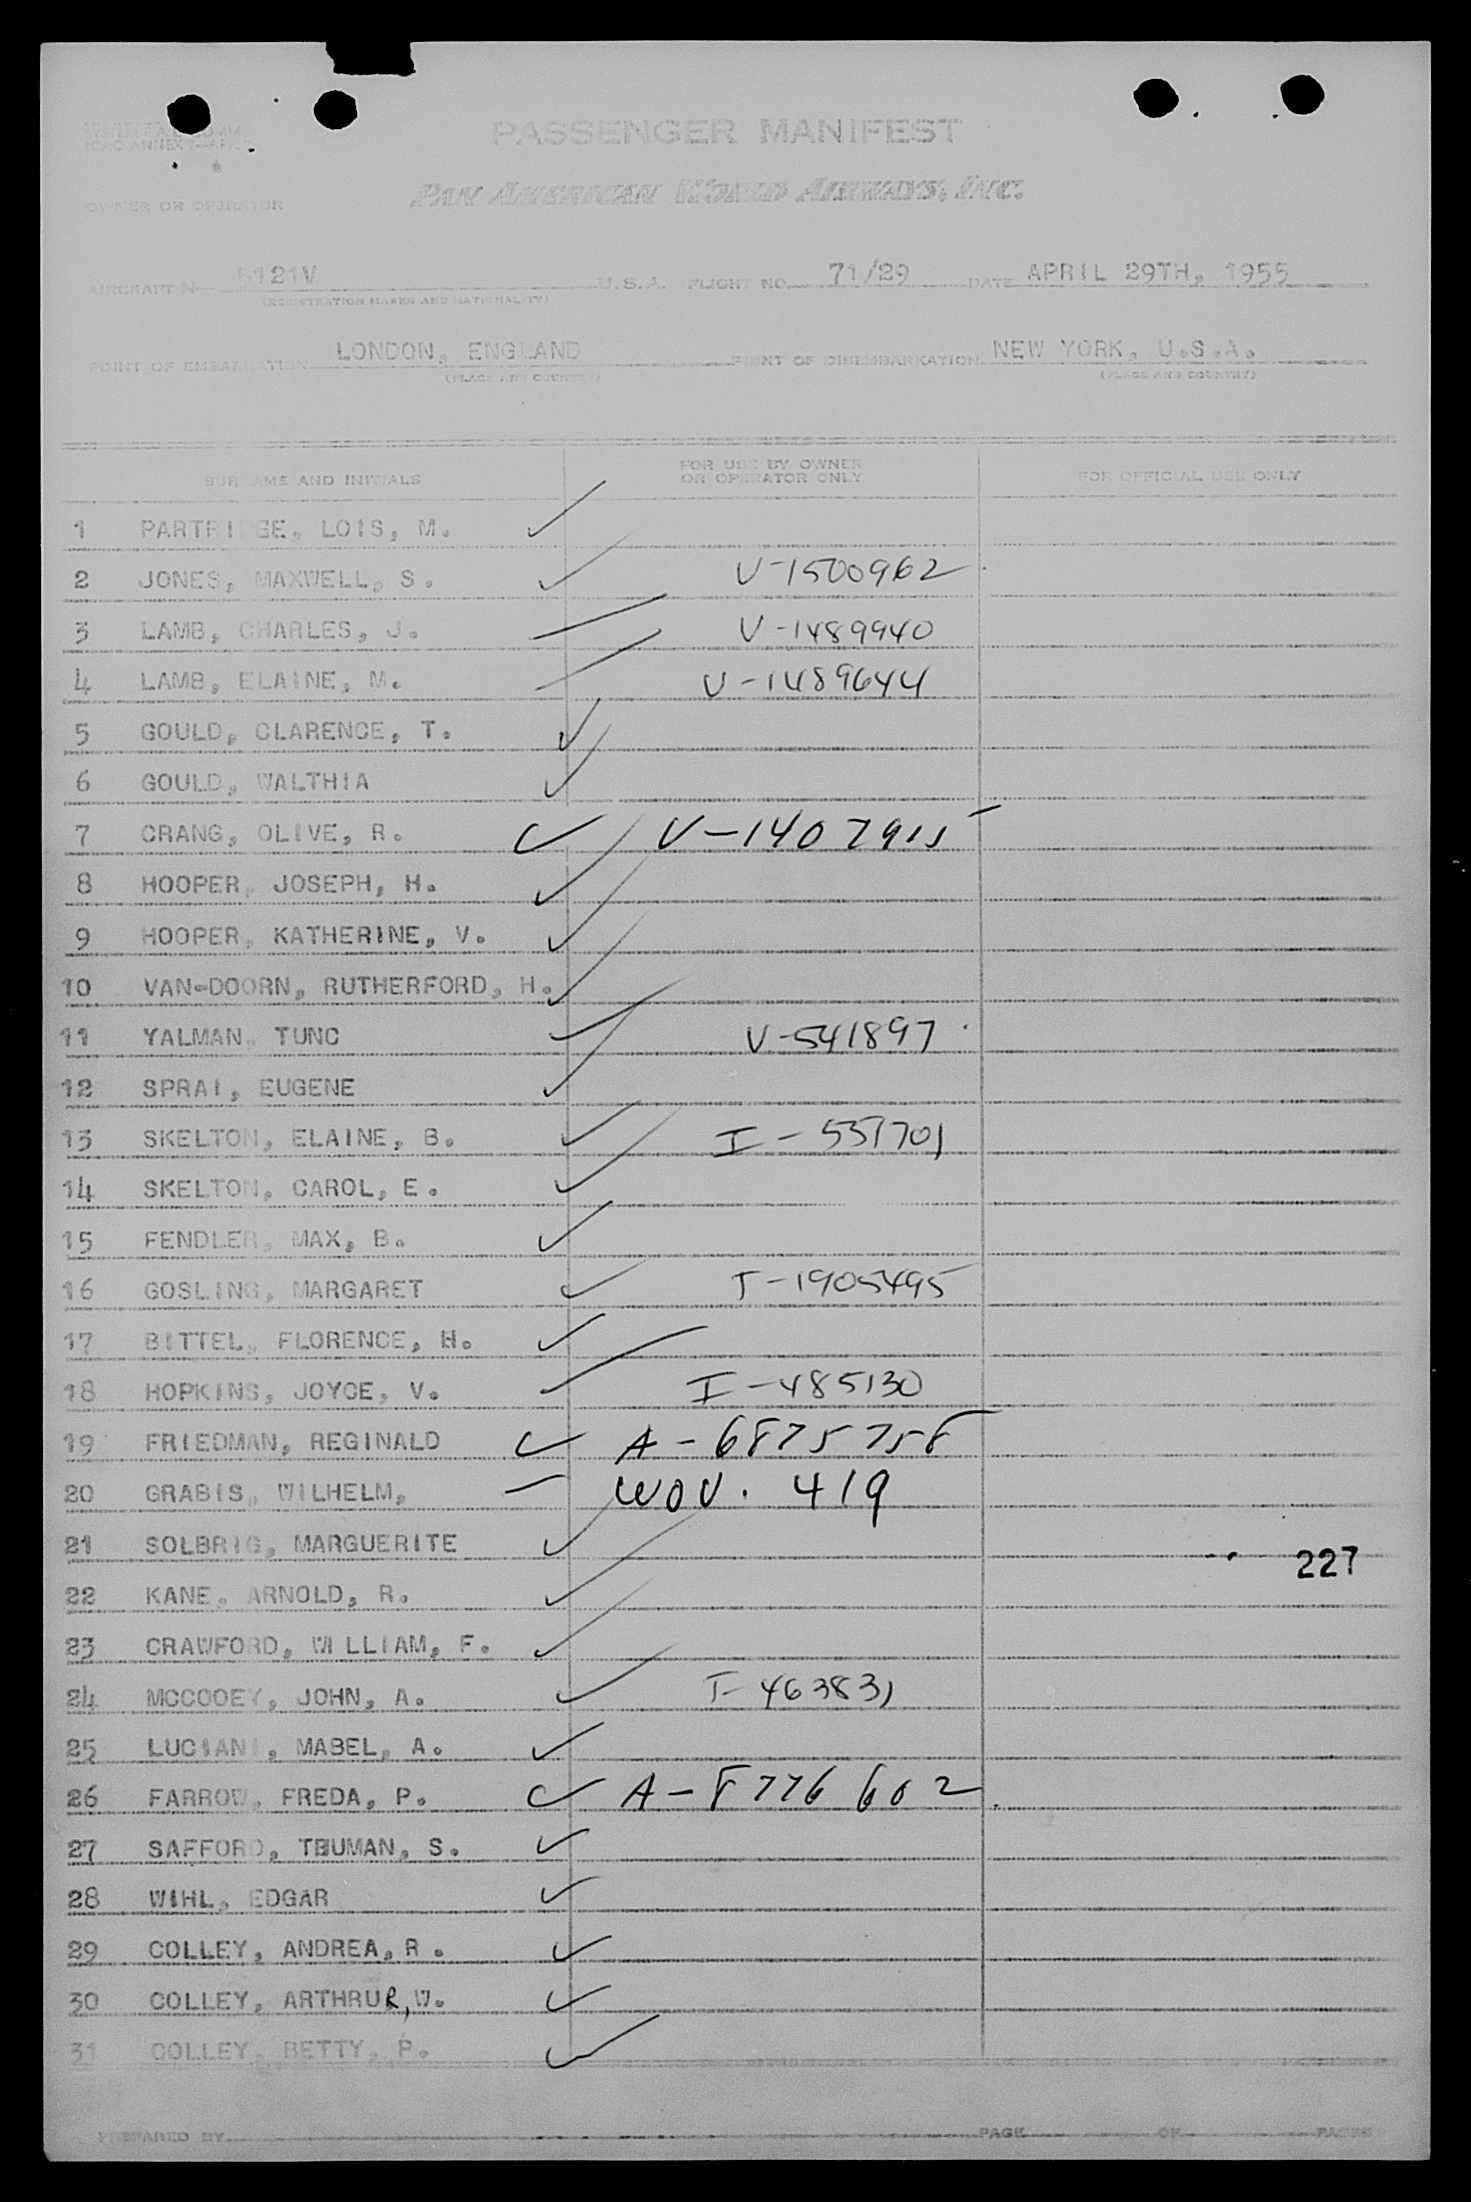 PASSENGER MANIFEST
PAN AMERICAN WORLD AIRWAYS, INC.
OWNER OR OPERATOR
AIRCRAFT N- 121V U.S.A. FLIGHT NO. 71/29 DATE APRIL 29TH, 1955
(REGISTRATION MARKS AND NATIONALITY)
POINT OF EMBARKATION LONDON, ENGLAND POINT OF DISEMBARKATION NEW YORK, U.S.A.
(PLACE AND COUNTRY) (PLACE AND COUNTRY)
SURNAME AND INITIALS FOR USE BY OWNER OR OPERATOR ONLY FOR OFFICIAL USE ONLY
1 PARTRIDGE, LOIS, M.
2 JONES, MAXWELL, S. V-1500962
3 LAMB, CHARLES, J. V-1489940
4 LAMB, ELAINE, M. V-1489644
5 GOULD, CLARENCE, T.
6 GOULD, WALTHIA
7 CRANG, OLIVE, R. V-1407915
8 HOOPER, JOSEPH, H.
9 HOOPER, KATHERINE, V.
10 VAN-DOORN, RUTHERFORD, H.
11 YALMAN, TUNC V-541897
12 SPRAI, EUGENE
13 SKELTON, ELAINE, B. I-537701
14 SKELTON, CAROL, E.
15 FENDLER, MAX, B.
16 GOSLING, MARGARET T-1905495
17 BITTEL, FLORENCE, H.
18 HOPKINS, JOYCE, V. I-485130
19 FRIEDMAN, REGINALD A-6875758
20 GRABIS, WILHELM, WOV. 419
21 SOLBRIG, MARGUERITE
227
22 KANE, ARNOLD, R.
23 CRAWFORD, WILLIAM, F.
24 MCCOOEY, JOHN, A. I-463831
25 LUCIANI, MABEL, A.
26 FARROW, FREDA, P. A-8776602
27 SAFFORD, TRUMAN, S.
28 WIHL, EDGAR
29 COLLEY, ANDREA, R.
30 COLLEY, ARTHRUR, W.
31 COLLEY, BETTY, P.
PREPARED BY PAGE OF PAGES